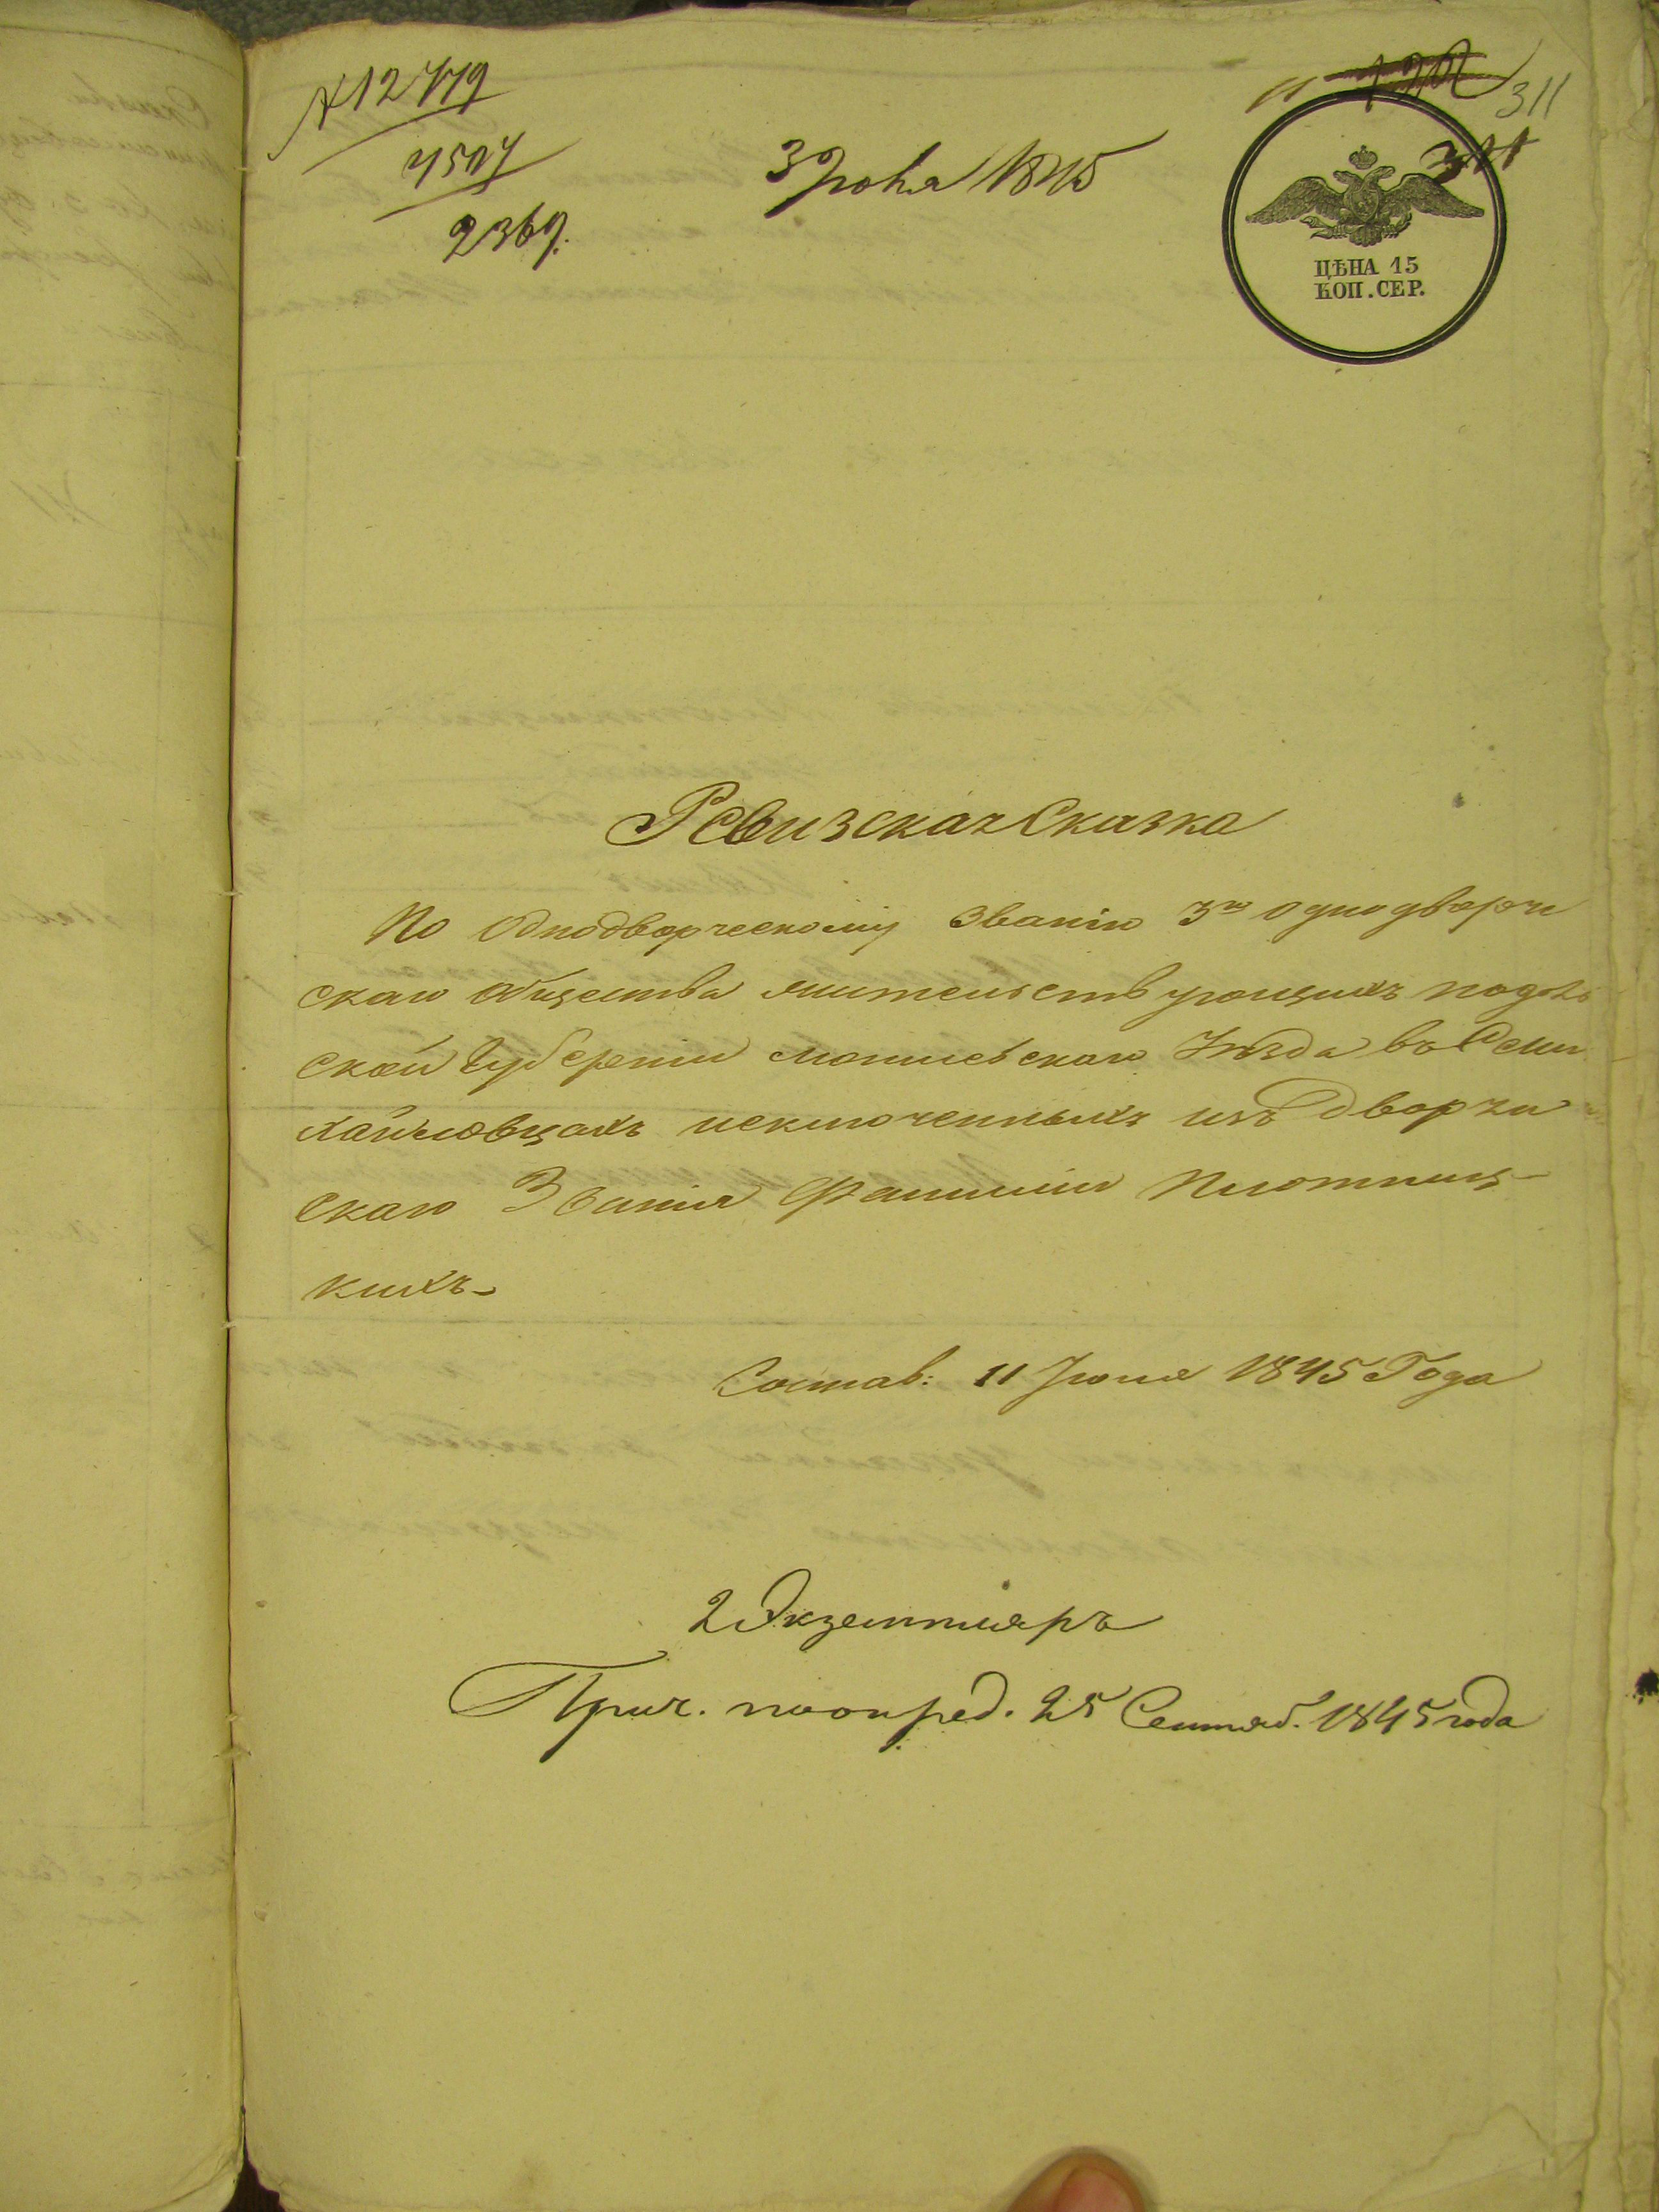 № 12779
4507
2369.
3 Іюля 1845
311
ЦѢНА 15
КОП. СЕР.
Ревизская Сказка
По Однодворческому Званію 3го однодворче
скаго общества жительствующихъ подоль
ской Губерніи Могилевскаго Уѣзда въ Семи
хайловцахъ исключенныхъ изъ Дворян
скаго Званія Фамиліи Плотниц-
кихъ-
Состав: 11 Іюня 1845 Года
2 Экземпляръ
Прич. по опред. 25 Сентяб. 1845 года